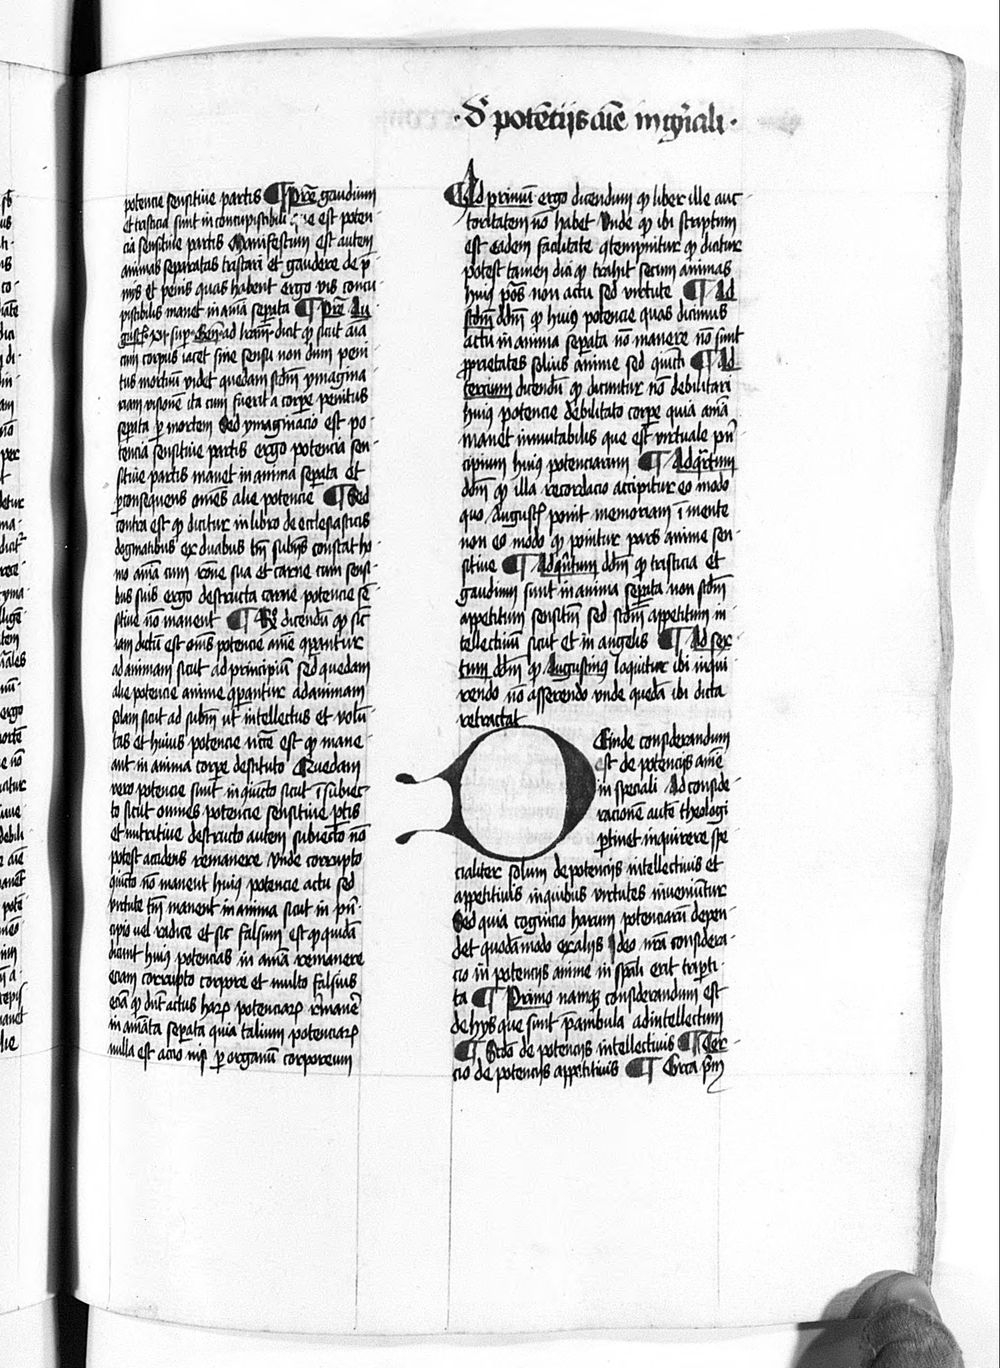 · De potētijs aīe in gn̄ali ·
potencie sensitiue partis ¶ Pretē gaudium
et tristicia sunt in concupiscibili que est poten
cia sensitiue partis Manifestum est autem
animas separatas tristari et gaudere de p̄
mijs et penis quas habent ergo vis concu
piscibilis manet in aīma sep̄ata ¶ Pretē Au
gust⁹ xij sup Gen̄ ad lr̄am dicit qp sicut aīa
cum corpus iacet sine sensu non dum peni
tus mortuū videt quedam scd̄m ymagina
riam visionē ita cum fuerit a corpe penitus
sep̄ata p mortem Sed ymaginacio est po
tencia sensitiue partis ergo potencia sen
sitiue partis manet in anima sep̄ata Et
p consequens omēs alie potencie ¶ Sed
contra est qp dicitur in libro de ecclesiasticis
dogmatibus ex duabus tm̄ subījs constat ho
mo aīma cum rōne sua et carne cum sensi
bus suis ergo destructa carne potencie sē
sitiue nō manent ¶ Rō dicendū qp sic̄
iam dictū est om̄s potencie aīme qpantur
ad animam sicut ad principium Sed quedam
alie potencie anime qpantur ad animam
solam sicut ad subīm vt intellectus et volū
tas et huius potencie nc̄ē est qp mane
ant in anima corpe destituto Quedam
vero potencie sunt in qiūcto sicut ī subiec
to sicut omnes potencie sensitiue p̄tis
et nutritiue destructo autem subiecto nō
potest accidens remanere Vnde corrupto
qiūcto nō manent huiꝰ potencie actu sed
virtute tm̄ manent in anima sicut in pn̄
cipio vel radice et sic falsum est qp quidā
dicunt huiꝰ potencias in aīma remanere
eciam corrupto corpore et multo falsius
eciā qp dnt actus haꝝ potenciaꝝ remanē
in aīmata sep̄ata quia talium potenciaꝝ
nulla est actio nisi p organū corporeum
Ad primū ergo dicendum qp liber ille auc
toritatem nō habet Vnde qp ibi scriptum
est eadem facilitate qtempnitur qp dicitur
potest tamen dici qp trahit secum animas
huiꝰ po̅s non actu sed virtute ¶ Ad
scd̄m dd̄m qp huiꝰ potencie quas dicimus
actu in anima sep̄ata nō manere nō sunt
prrietates solius anime sed qiūcti ¶ Ad
tercium dicendū qp dicuntur nō debilitari
huiꝰ potencie debilitato corpe quia aīma
manet inmutabilis que est virtuale pn̄
cipium huiꝰ potenciarum ¶ Ad q̄rtum
dd̄m qp illa recordacio accipitur eo modo
quo August⁹ ponit memoriam ī mente
non eo modo qp ponitur pars anime sen
sitiue ¶ Ad qntum dd̄m qp tristicia et
gaudium sunt in anima sep̄ata non scd̄m
appetitum sensitm̄ sed scd̄m appetitum in
tellectiuū sicut et in angelis ¶ Ad sex
tum dd̄m qp Augustinꝰ loquitur ibi inqui
rendo nō asserendo vnde quedā ibi dicta
retractat
Deinde considerandum
est de potencijs aīme
in speciali Ad conside
racionē autē theologi
p̄tinet inquirere spe
cialiter solum de potencijs intellectiuis et
appetitiuis in quibus virtutes inueniūtur
Sed quia cognicio harum potenciarū depen
det quodāmodo ex alijs Ideo nr̄a considera
cio in potencijs anime in sp̄ali erit trip̄ti
ta ¶ Primo namqꝫ considerandum est
de hijs que sunt p̄ambula ad intellectum
¶ Scd̄o de potencijs intellectiuis ¶ Ter
cio de potencijs appetitiuis ¶ Circa p̄m̄